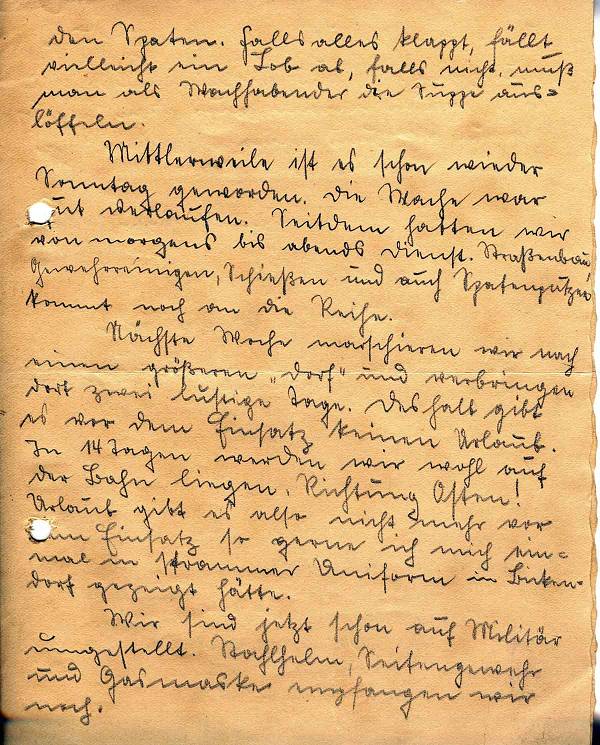 den Spaten. Falls alles klappt, fällt
vielleicht ein Lob ab, falls nicht, muß
man als Wachhabender die Suppe aus=
löffeln.
Mittlerweile ist es schon wieder
Sonntag geworden. Die Wache war
gut verlaufen. Seitdem hatten wir
von morgens bis abends Dienst. Straßenbau,
Gewehrreinigen, Schießen und auch Spatenputzen
kommt noch an die Reihe.
Nächste Woche marschieren wir nach
einen größeren „Dorf" und verbringen
dort zwei lustige Tage. Deshalb gibt
es vor dem Einsatz keinen Urlaub.
In 14 Tagen werden wir wohl auf
der Bahn liegen, Richtung Osten!
Urlaub gibt es also nicht mehr vor
dem Einsatz so gerne ich mich ein=
mal in strammer Uniform in Bicken-
dorf gezeigt hätte.
Wir sind jetzt schon auf Militär
umgestellt. Stahlhelm, Seitengewehr
und Gasmaske empfangen wir
noch.